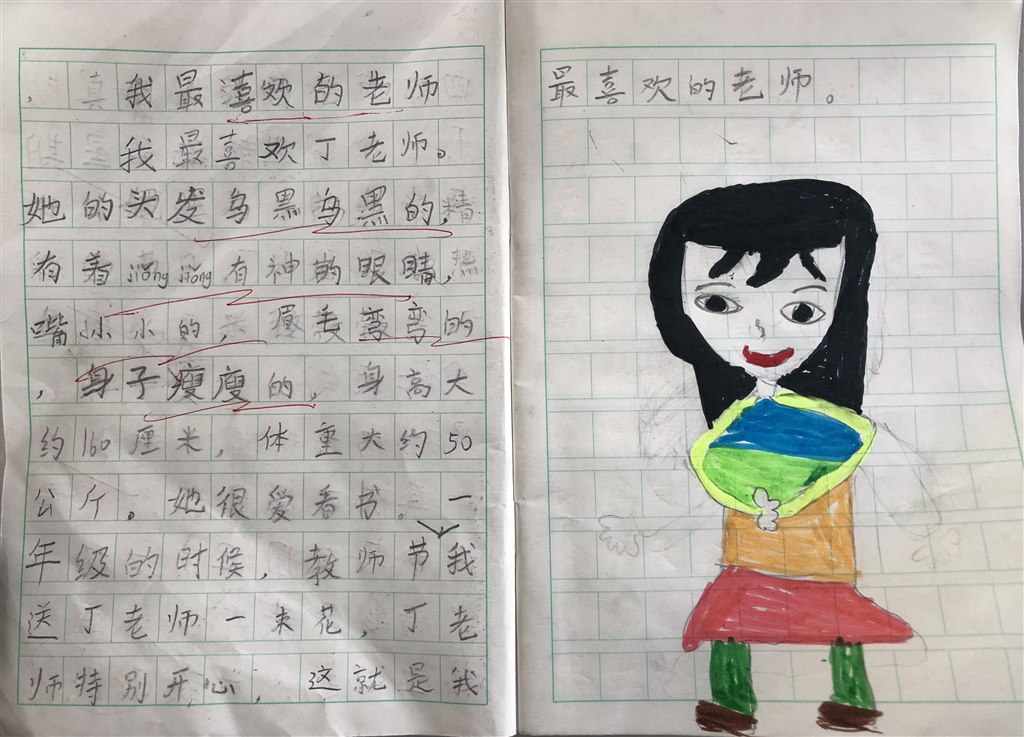 我最喜欢的老师
我最喜欢丁老师。
她的头发乌黑乌黑的,
有着jiǒng jiǒng有神的眼睛,
嘴小小的,眉毛弯弯的
,身子瘦瘦的,身高大
约160厘米,体重大约50
公斤。她很爱看书。一
年级的时候,教师节我
送丁老师一束花,丁老
师特别开心,这就是我
最喜欢的老师。